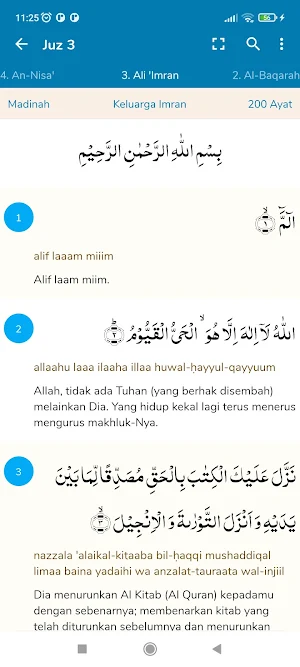 11:25
56
Juz 3
4. An-Nisa' 3. Ali 'Imran 2. Al-Baqarah
Madinah Keluarga Imran 200 Ayat
بِسْمِ اللّٰهِ الرَّحْمٰنِ الرَّحِيْمِ
1
الۤمّۤ ۙ ١
alif laaam miiim
Alif laam miim.
2
اللّٰهُ لَآ اِلٰهَ اِلَّا هُوَ ۙ الْحَيُّ الْقَيُّوْمُ ۗ ٢
allaahu laaa ilaaha illaa huwal-ḥayyul-qayyuum
Allah, tidak ada Tuhan (yang berhak disembah)
melainkan Dia. Yang hidup kekal lagi terus menerus
mengurus makhluk-Nya.
3
نَزَّلَ عَلَيْكَ الْكِتٰبَ بِالْحَقِّ مُصَدِّقًا لِّمَا بَيْنَ
يَدَيْهِ وَاَنْزَلَ التَّوْرٰىةَ وَالْاِنْجِيْلَ ۙ ٣
nazzala 'alaikal-kitaaba bil-ḥaqqi mushaddiqal
limaa baina yadaihi wa anzalat-tauraata wal-injiil
Dia menurunkan Al Kitab (Al Quran) kepadamu
dengan sebenarnya; membenarkan kitab yang
telah diturunkan sebelumnya dan menurunkan